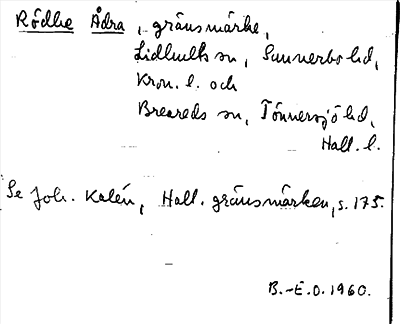 Rödke Ådra, gränsmärke,
Lidhults sn, Sunnerbo hd,
Kron. l. och
Breareds sn, Tönnersjö hd,
Hall. l.
Se Joh. Kalén, Hall. gränsmärken, s. 175.
B.-E.O. 1960.